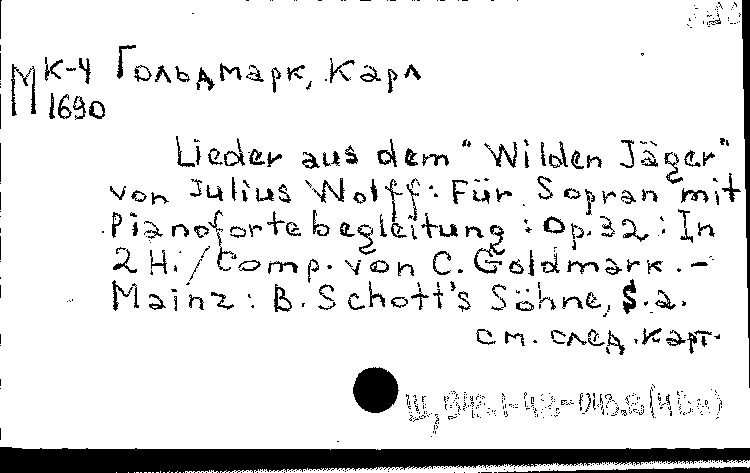 М К-4 Гольдмарк, Карл
1690
Lieder aus dem "Wilden Jäger"
von Julius Wolff: Für Sopran mit
Pianofortebegleitung: Op.32: In
2 H. / Comp. von C. Goldmark. –
Mainz: B. Schott's Söhne, S.a.
см. след. карт.